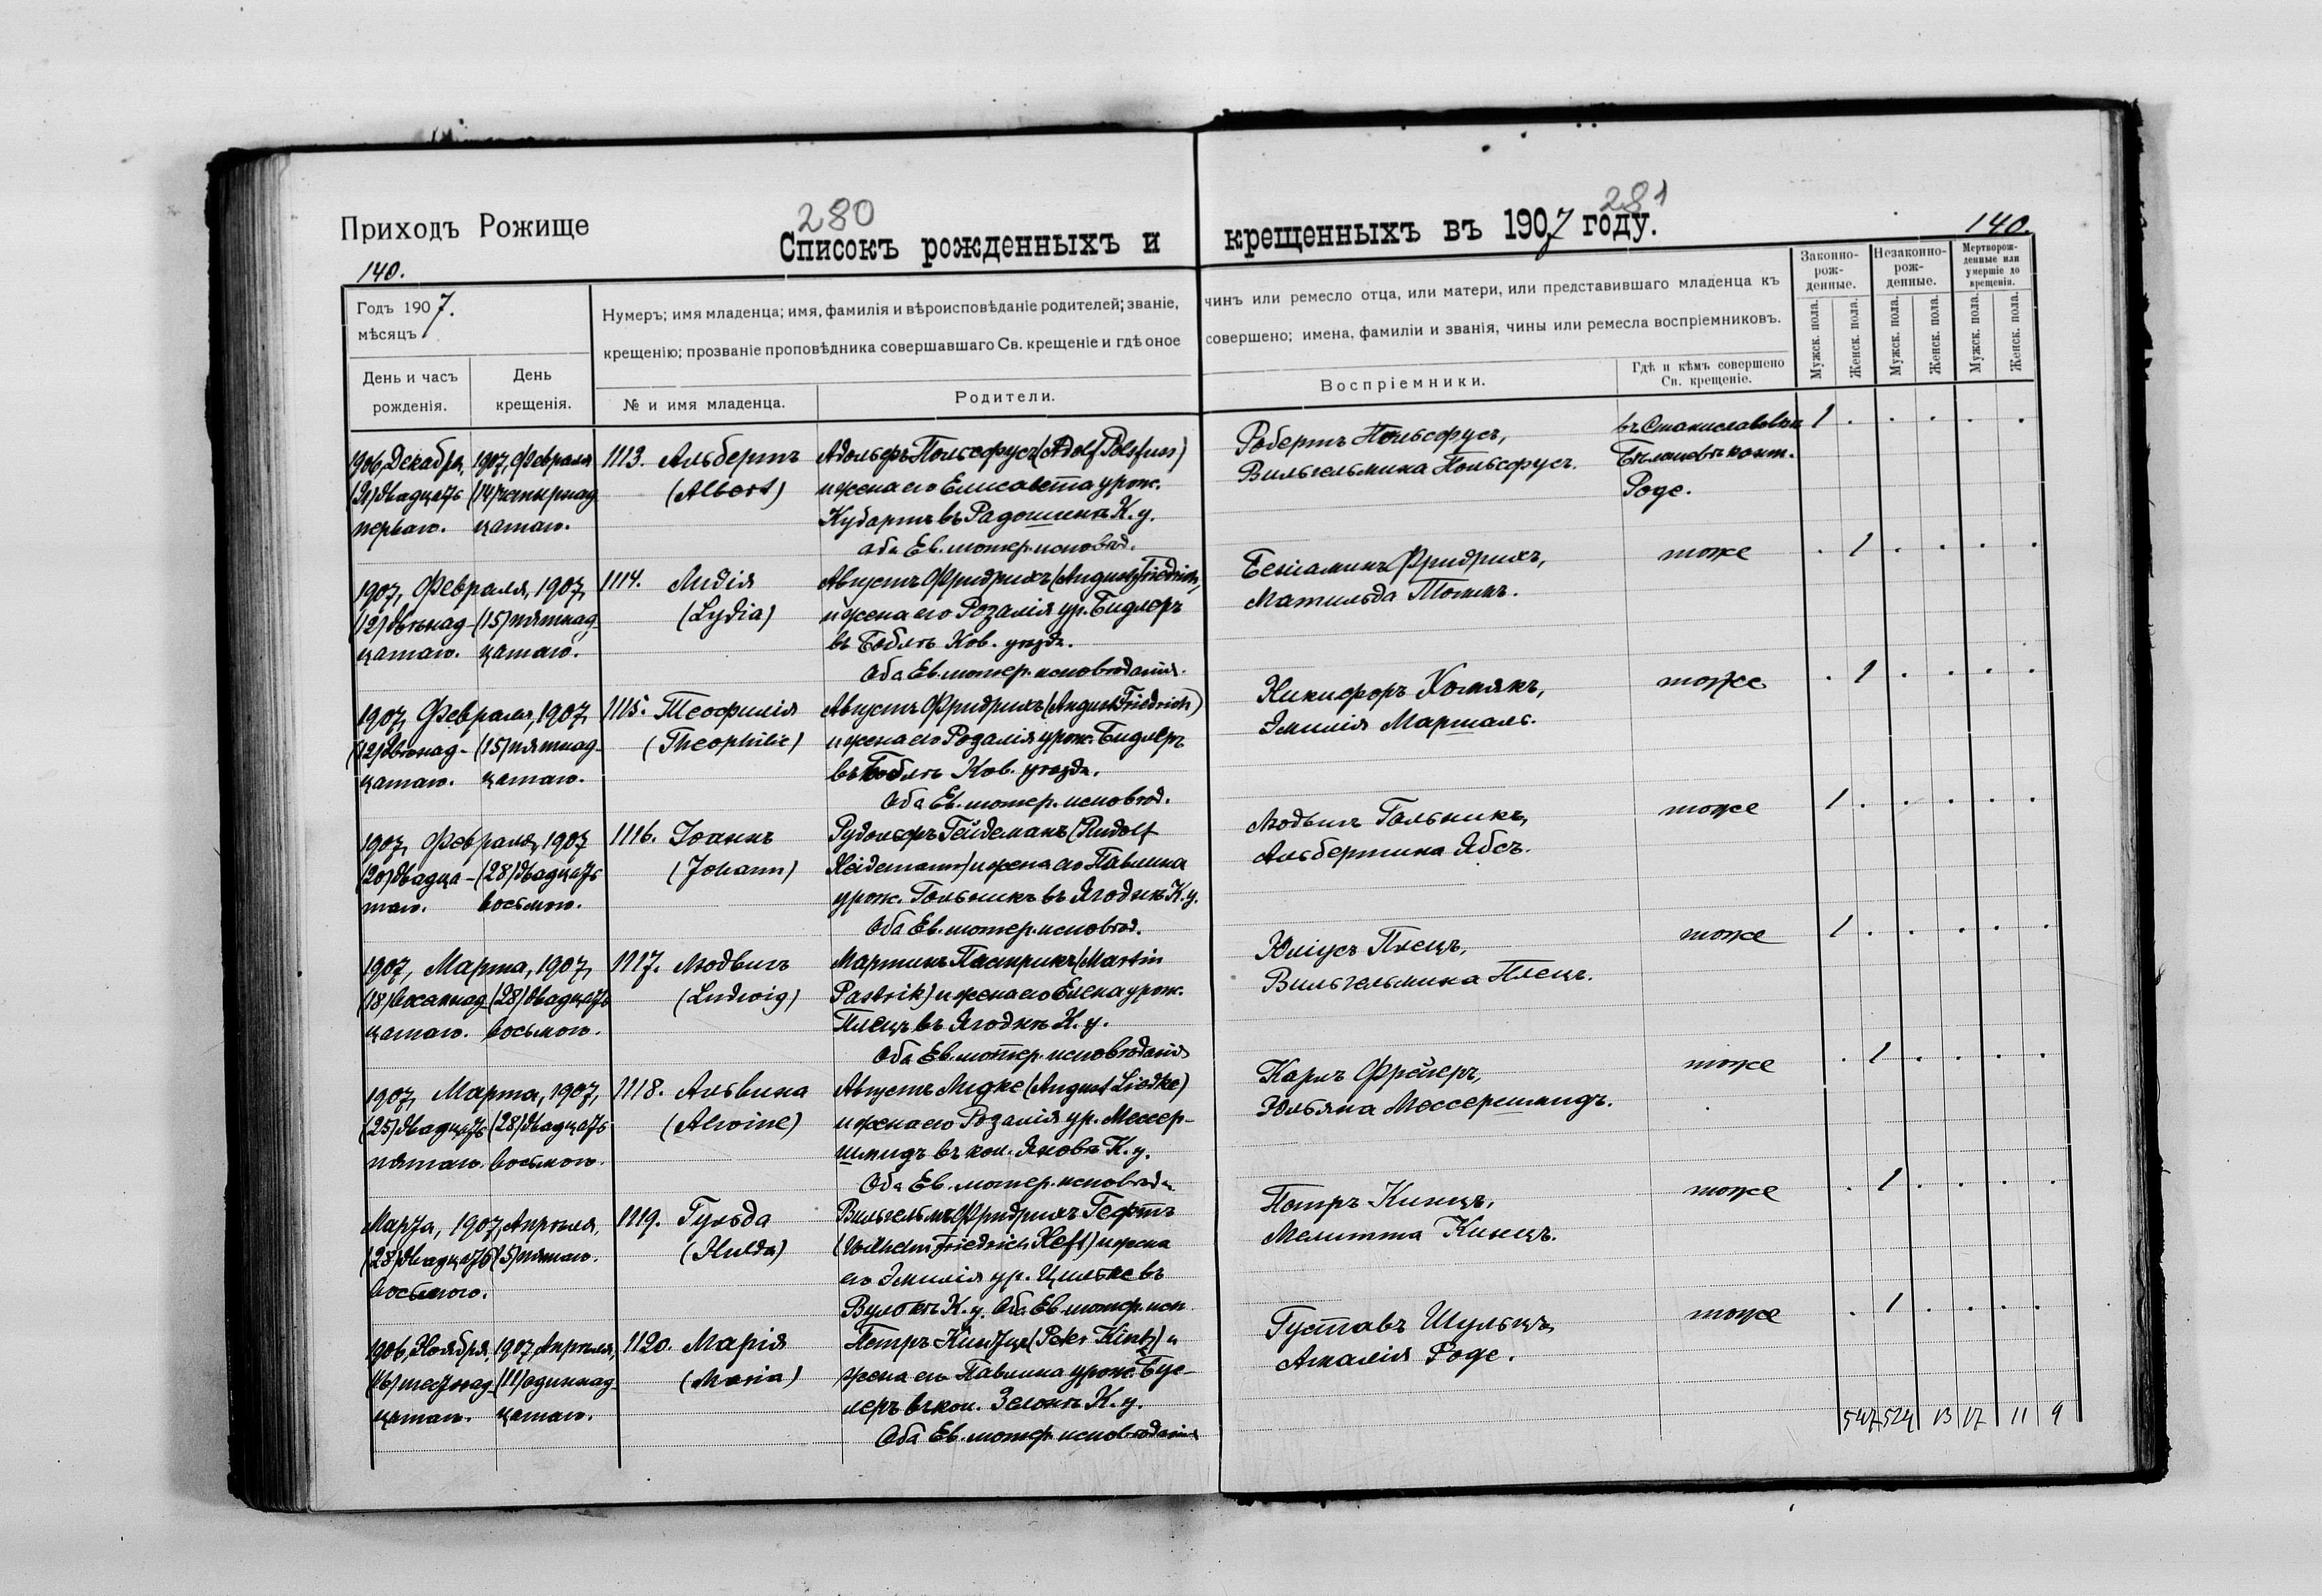 280
281
Приходъ Рожище
Списокъ рожденныхъ и крещенныхъ въ 1907 году.
140.
140
Годъ 1907.
мѣсяцъ
День и часъ рожденія.
День крещенія.
Нумеръ; имя младенца; имя, фамилія и вѣроисповѣданіе родителей; званіе,
чинъ или ремесло отца, или матери, или представившаго младенца къ
крещенію; прозваніе проповѣдника совершавшаго Св. крещеніе и гдѣ оное
совершено; имена, фамиліи и званія, чины или ремесла воспріемниковъ.
№ и имя младенца.
Родители.
Воспріемники.
Гдѣ и кѣмъ совершено Св. крещеніе.
Законно-рож-денные.
Незаконно-рож-денные.
Мертворож-денные или умершіе до крещенія.
Мужск. пола.
Женск. пола.
Мужск. пола.
Женск. пола.
Мужск. пола.
Женск. пола.
1906, Декабря, 1907, Февраля 1113. Альбертъ Адольфъ Польсфусъ (Adolf Polsfuss)
(21) двадцать (14) четырнад (Albert) и жена его Елисавета урож.
перваго. цатаго. Кубартъ въ Радошинѣ К. у.
оба Ев. лютер. исповѣд.
Робертъ Польсфусъ,
Вильгельмина Польсфусъ.
въ Станиславовкѣ
кант.
Роде.
1 . . . . .
1907, Февраля, 1907, 1114. Лидія Августъ Фридрихъ (August Friedrich)
(12) двѣнад- (15) пятнад- (Lydia) и жена его Розалія ур. Бидлеръ
цатаго. цатаго. въ Боблѣ Ков. уѣзда.
Оба Ев. лютер. исповѣданія.
Беніаминъ Фридрихъ,
Матильда
тоже
. 1 . . . .
1907, Февраля, 1907, 1115. Теофилія Августъ Фридрихъ (August Friedrich)
(12) двѣнад- (15) пятнад- (Theophilie) и жена его Розалія урож. Бидлеръ
цатаго. цатаго. въ Боблѣ Ков. уѣзда.
Оба Ев. лютер. исповѣд.
Никифоръ Хомякъ,
Эмилія Маршаль.
тоже
. 1 . . . .
1907, Февраля, 1907 1116. Іоаннъ Рудольфъ Гейдеманъ (Rudolf
(20) двадца- (28) двадцать (Johann) Heidemann) и жена его Павлина
таго. восьмого. урож. Гольникъ въ Ягоднѣ К. у.
Оба Ев. лютер. исповѣд.
Людвигъ Гольникъ,
Альбертина Ябсъ.
тоже
1 . . . . .
1907, Марта, 1907, 1117. Людвигъ Мартинъ Пастрикъ (Martin
(18) восемнад (28) двадцать (Ludwig) Pastrik) и жена его Елена урож.
цатаго. восьмого. Плецъ въ Ягоднѣ К. у.
Оба Ев. лютер. исповѣданія
Юліусъ Плецъ,
Вильгельмина Плецъ.
тоже
1 . . . . .
1907, Марта, 1907, 1118. Альвина Августъ Лидке (August Liedke)
(25) двадцать (28) двадцать (Alwine) и жена его Розалія ур. Мессер-
пятаго. восьмого. шмидъ въ кол. Яновкѣ К. у.
Оба Ев. лютер. исповѣд.
Карлъ Фрейеръ,
Юльяна Мессершмидъ.
тоже
. 1 . . . .
Марта, 1907, Апрѣля, 1119. Гульда Вильгельмъ Фридрихъ Гефтъ
(28) двадцать (5) пятаго. (Hulda) (Wilhelm Friedrich Heft) и жена
восьмого. его Эмилія ур. Цильке въ
К. у. Оба Ев. лютер. исп.
Петръ Кинцъ,
Мелитта Кинцъ.
тоже
. 1 . . . .
1906, Ноября, 1907, Апрѣля, 1120. Марія Петръ Кинцъ (Peter Kintz) и
(16) шестнад- (11) одиннад- (Maria) жена его Павлина урож. Бус-
цатаго. цатаго. леръ въ кол. К. у.
Оба Ев. лютер. исповѣданія
Густавъ Шульцъ,
Амалія Роде.
тоже
. 1 . . . .
547 524 13 17 11 9